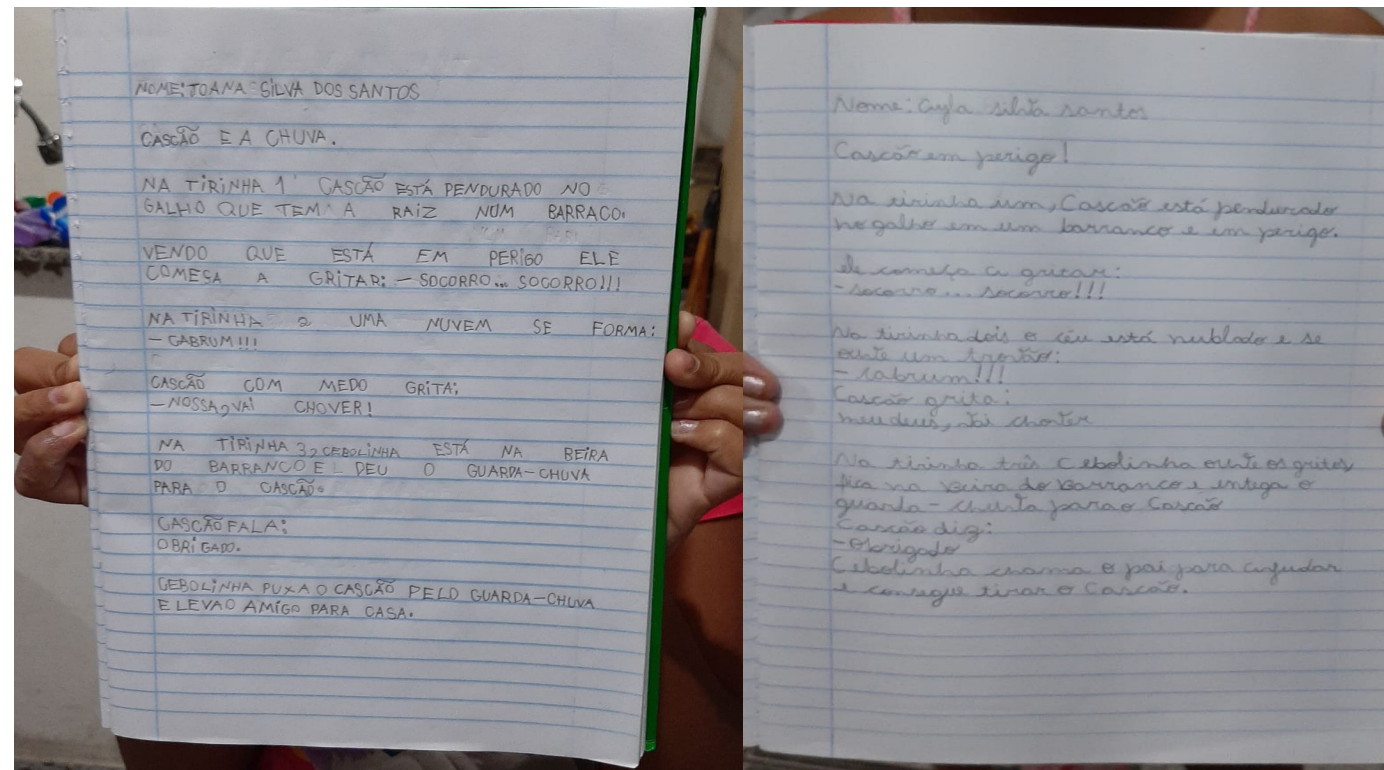 NOME: JOANA SILVA DOS SANTOS
CASCÃO E A CHUVA.
NA TIRINHA 1 CASCÃO ESTÁ PENDURADO NO
GALHO QUE TEM A RAIZ NUM BARRACO.
VENDO QUE ESTÁ EM PERIGO ELE
COMEÇA A GRITAR: - SOCORRO... SOCORRO!!!
NA TIRINHA 2 UMA NUVEM SE FORMA:
- CABRUM!!!
CASCÃO COM MEDO GRITA:
- NOSSA, VAI CHOVER!
NA TIRINHA 3, CEBOLINHA ESTÁ NA BEIRA
DO BARRANCO E DEU O GUARDA-CHUVA
PARA O CASCÃO.
CASCÃO FALA:
OBRIGADO.
CEBOLINHA PUXA O CASCÃO PELO GUARDA-CHUVA
E LEVA O AMIGO PARA CASA.
Nome: Ayla silva santos
Cascão em perigo!
Na tirinha um, Cascão está pendurado
no galho em um barranco e em perigo.
ele começa a gritar:
- socorro... socorro!!!
Na tirinha dois o céu está nublado e se
ouve um trovão:
- cabrum!!!
Cascão grita:
meu deus, vai chover
Na tirinha três Cebolinha ouve os gritos
fica na Beira do Barranco e entega o
guarda-chuva para o Cascão
Cascão diz:
- Obrigado
Cebolinha chama o pai para ajudar
e consegue tirar o Cascão.